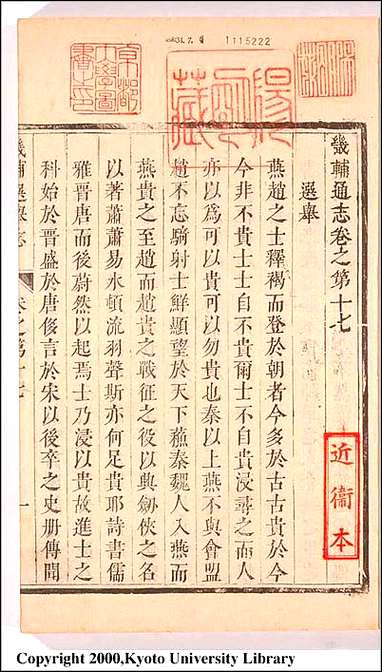 1115222
京都
大學圖
書之印
陽明
藏
畿輔通志卷之第十七
選舉
燕趙之士釋褐而登於朝者今多於古古貴於今
今非不貴士士自不貴爾士不自貴浸尋之而人
亦以為可以貴可以勿貴也秦以上燕不與會盟
趙不忘騎射士鮮顯望於天下蘓秦魏人入燕而
燕貴之至趙而趙貴之戰征之役以與劍俠之名
以著蕭蕭易水頓流羽聲斯亦何足貴耶詩書儒
雅晉唐而後蔚然以起焉士乃浸以貴故進士之
科始於晉盛於唐俊言於宋以後卒之史册傳聞
近衞本
畿輔通志
選舉
卷之第十七
一
Copyright 2000,Kyoto University Library